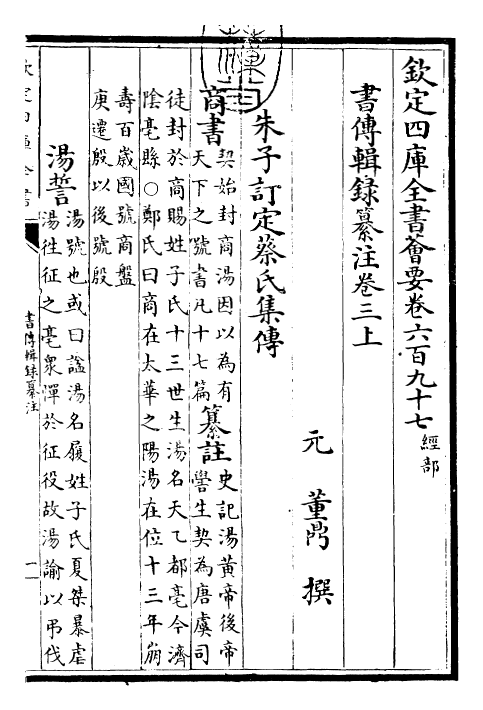 欽定四庫全書薈要卷六百九十七 經部
書傳輯錄纂注卷三上
元 董鼎 撰
朱子訂定蔡氏集傳
商書 契始封商湯因以為有
天下之號書凡十七篇
纂註 史記湯黃帝後帝
嚳生契為唐虞司
徒封於商賜姓子氏十三世生湯名天乙都亳今濟
陰亳縣○鄭氏曰商在太華之陽湯在位十三年崩
壽百歲國號商盤
庚遷殷以後號殷
湯誓 湯號也或曰諡湯名履姓子氏夏桀暴虐
湯往征之亳衆憚於征役故湯諭以弔伐
欽定四庫全書
書傳輯錄纂注
一